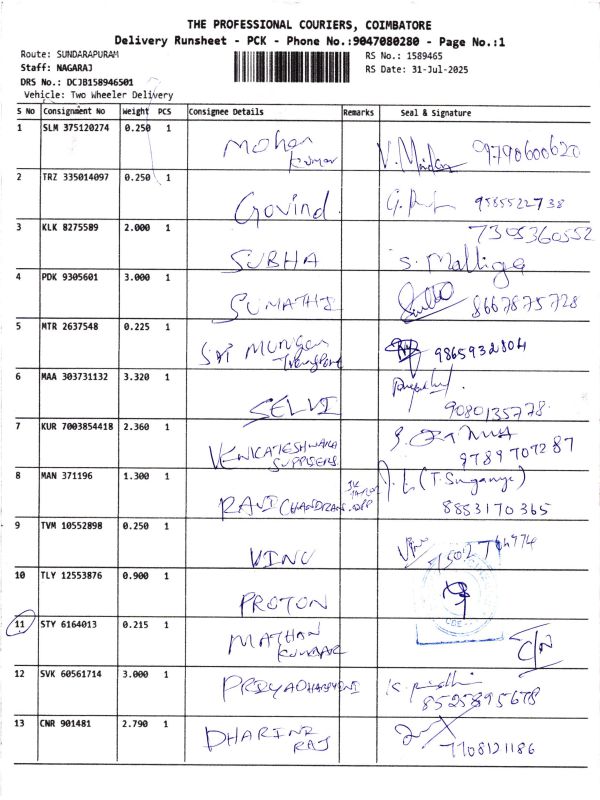 THE PROFESSIONAL COURIERS, COIMBATORE
Delivery Runsheet - PCK - Phone No.:9047080280 - Page No.:1
Route: SUNDARAPURAM
RS No.: 1589465
Staff: NAGARAJ
RS Date: 31-Jul-2025
DRS No.: DCJB158946501
Vehicle: Two Wheeler Delivery
S No Consignment No Weight PCS Consignee Details Remarks Seal & Signature
1 SLM 375120274 0.250 1 Mohan Kumar 9790600620
2 TRZ 335014097 0.250 1 Govind 9585522738
3 KLK 8275589 2.000 1 SUBHA S. Malliga 7305360552
4 PDK 9305601 3.000 1 SUMATHI 8667875728
5 MTR 2637548 0.225 1 Sri Murugan Transport 9865932804
6 MAA 303731132 3.320 1 SELVI 9080135778
7 KUR 7003854418 2.360 1 VENKATESHWARA SUPPLIERS 9789707287
8 MAN 371196 1.300 1 RAVICHANDRAN 8853170365
9 TVM 10552898 0.250 1 VINU
10 TLY 12553876 0.900 1 PROTON
11 STY 6164013 0.215 1 MATHAN KUMAR C/N
12 SVK 60561714 3.000 1 PRIYADHARSHINI 8525895678
13 CNR 901481 2.790 1 DHARINI RAJ 7708121186